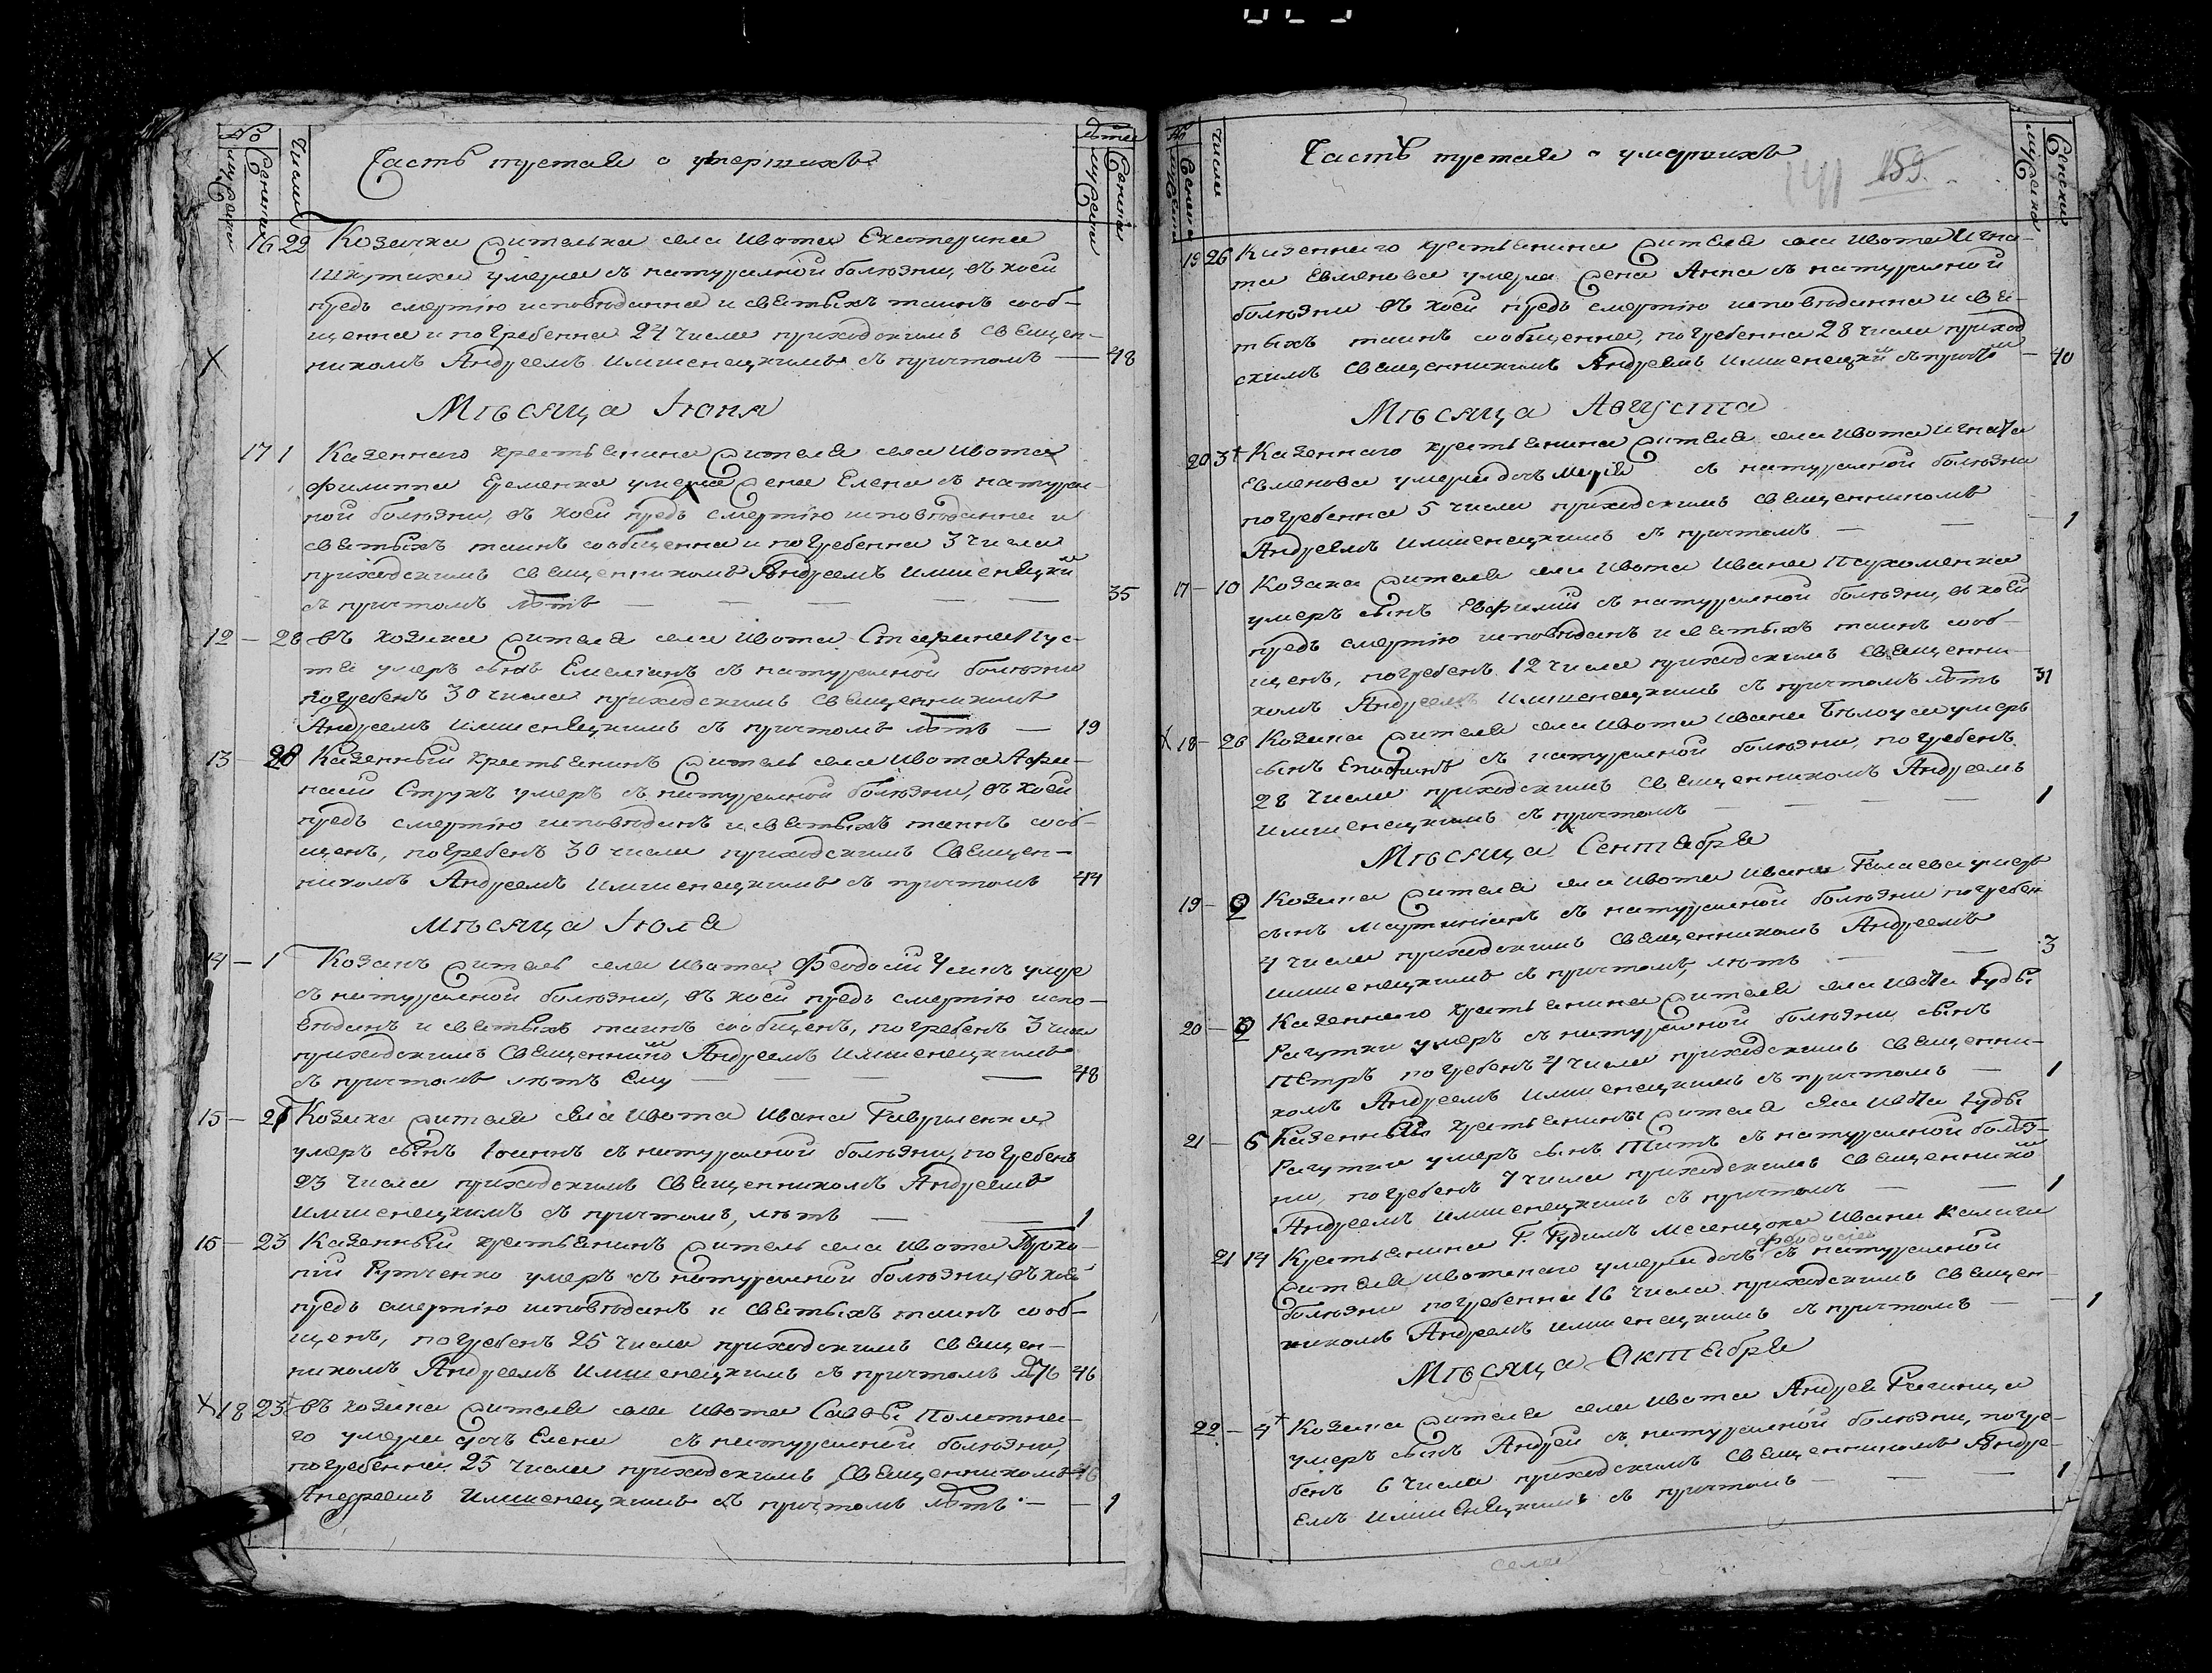 №
мужеска
женска
Числа
Часть третая о умершихъ
лѣта
мужеска
женска
16 22 Козачка жителька села Ивота Екатерина
умерла съ натуралной болѣзни, въ коей
предъ смертію исповѣданна и святыхъ таинъ сооб-
щенна и погребенна 24 числа приходскимъ священ-
никомъ Андреемъ Имшенецкимъ съ причтомъ — 48
Мѣсяца Іюня
17 1 Казенного крестьянина жителя села Ивота
Филиппа Еременка умерла жена Елена съ натурал-
ной болѣзни, въ коей предъ смертію исповѣданна и
святыхъ таинъ сообщенна и погребенна 3 числа
приходскимъ священникомъ Андреемъ Имшенецким
съ причтомъ лѣтъ — — — — — 35
12 — 28 въ козака жителя села Ивота
умеръ сынъ Емеліанъ съ натуралной болѣзни
погребенъ 30 числа приходскимъ священникомъ
Андреемъ Имшенецкимъ съ причтомъ лѣтъ — 19
13 — 28 Казенный крестьянинъ житель села Ивота Афа-
насій Струкъ умеръ съ натуралной болѣзни, въ коей
предъ смертію исповѣданъ и святыхъ таинъ сооб-
щенъ, погребенъ 30 числа приходскимъ священ-
никомъ Андреемъ Имшенецкимъ съ причтомъ 44
Мѣсяца Іюля
14 — 1 Козакъ житель села Ивота Феодосій умре
съ натуралной болѣзни, въ коей предъ смертію испо-
вѣданъ и святыхъ таинъ сообщенъ, погребенъ 3 числа
приходскимъ священником Андреемъ Имшенецкимъ
съ причтомъ лѣтъ ему — — — 48
15 — 21 Козака жителя села Ивота Ивана Гавриленка
умеръ сынъ Іоаннъ съ натуралной болѣзни, погребенъ
23 числа приходскимъ священникомъ Андреемъ
Имшенецкимъ съ причтомъ, лѣтъ — — 1
15 — 23 Казенный крестьянинъ житель села Ивота Проко-
пій умеръ съ натуралной болѣзни, въ коей
предъ смертію исповѣданъ и святыхъ таинъ сооб-
щенъ, погребенъ 25 числа приходскимъ священ-
никомъ Андреемъ Имшенецкимъ съ причтомъ 46
18 23 въ козака жителя села Ивота Саввы Полетна-
го умерла дочь Елена съ натуралной болѣзни,
погребенна 25 числа приходскимъ священникомъ
Андреемъ Имшенецкимъ съ причтомъ лѣтъ — — 1
№
мужеска
женска
числа
Часть третая о умершихъ
141 159.
мужеска
женска
19 26 Казенного крестьянина жителя села Ивота Игна-
та Евменова умерла жена Анна съ натуралной
болѣзни въ коей предъ смертію исповѣданна и свя-
тыхъ таинъ сообщенна, погребенна 28 числа приход
скимъ священникомъ Андреемъ Имшенецким съ причтом — 40
Мѣсяца Августа
20 3 Казенного крестьянина жителя села Ивота Игната
Евменова умерла дочъ Марія съ натуралной болѣзни
погребенна 5 числа приходскимъ священникомъ
Андреемъ Имшенецкимъ съ причтомъ — — — 1
17 — 10 Козака жителя села Ивота Ивана Пархоменка
умеръ сынъ Евфимій съ натуралной болѣзни, въ коей
предъ смертію исповѣданъ и святыхъ таинъ сооб-
щенъ, погребенъ 12 числа приходскимъ священни-
комъ Андреемъ Имшенецкимъ съ причтомъ лѣтъ 31
18 — 26 Козака жителя села Ивота Ивана Бѣлоуса умеръ
сынъ съ натуралной болѣзни, погребенъ
28 числа приходскимъ священникомъ Андреемъ
Имшенецкимъ съ причтомъ — — — — 1
Мѣсяца Сентября
19 — Козака жителя села Ивота Ивана умеръ
сынъ Мартиніанъ съ натуралной болѣзни погребен
4 числа приходскимъ священникомъ Андреемъ
Имшенецкимъ съ причтомъ, лѣтъ — — 3
20 — Казенного крестьянина жителя села Ивота
умеръ съ натуралной болѣзни сынъ
Петръ погребенъ 4 числа приходскимъ священни-
комъ Андреемъ Имшенецкимъ съ причтомъ — 1
21 — 5 Казенного крестьянина жителя села Ивота
умеръ сынъ Титъ съ натуралной болѣз-
ни, погребенъ 7 числа приходскимъ священником
Андреемъ Имшенецкимъ съ причтомъ — — 1
21 14 Крестьянина Ивана
Феодосія
жителя Ивотского умерла дочь съ натуралной
болѣзни погребенна 16 числа приходскимъ священ
никомъ Андреемъ Имшенецкимъ съ причтомъ — — 1
Мѣсяца Октября
22 — 4 Козака жителя села Ивота Андрея
умеръ сынъ Андрей съ натуралной болѣзни, погре-
бенъ 6 числа приходскимъ священникомъ Андре-
емъ Имшенецкимъ съ причтомъ — — — 1
села